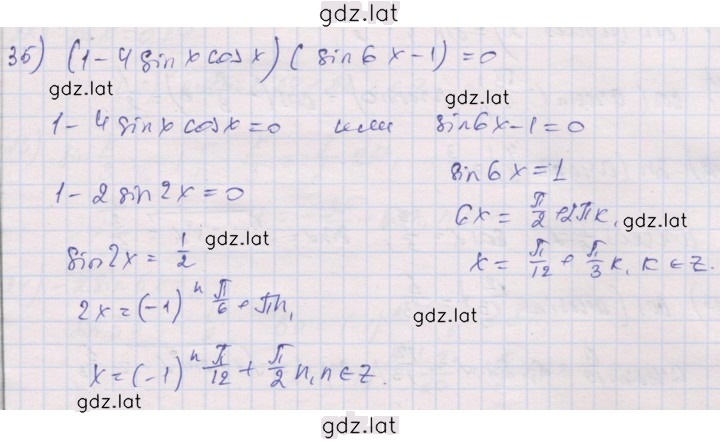 gdz.lat
35) (1-4 sin x cos x) ( sin 6x-1) =0
gdz.lat gdz.lat
1-4 sin x cos x=0 или sin 6x-1=0
1-2 sin 2x=0 sin 6x=1
6x= π/2 +2πk, gdz.lat
sin 2x= 1/2 gdz.lat
x= π/12 + π/3 k, k ∈ Z.
2x=(-1)^n π/6 + πn, gdz.lat
x=(-1)^n π/12 + π/2 n, n ∈ Z.
gdz.lat
gdz.lat